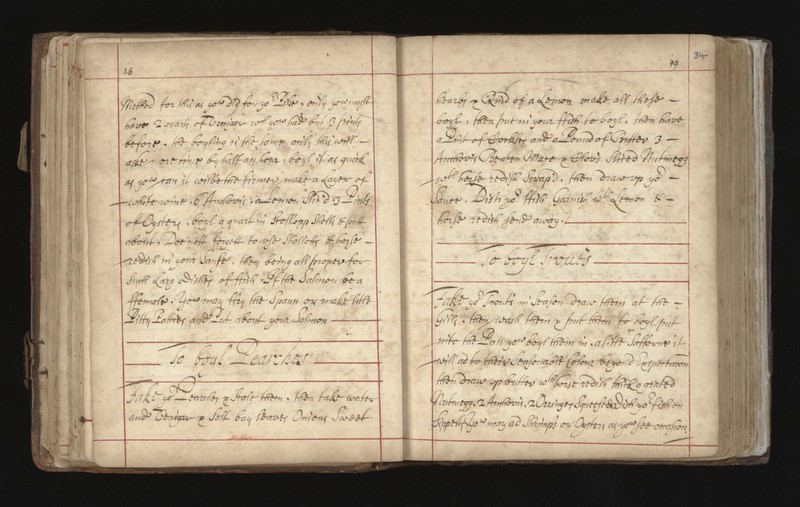 18
Method for this as you did for yor Pike, only you must
have 2 quarts of Vinigar wch you had but 3 pints
before, the boyling is the same only this will
aske more time by half an hour, boyl it as quick
as you can it will be the firmer, make a Layer of
white wine, 6 Anchovis, a Lemon Slic'd 3 Pints
of Oysters, boyl a quart in Scollopp Shells & putt
about, Doe nott forgett to use Shallotts & horse
redish in your Sause, they being all proper for
such Larg Dishes of fish, If the Salmon be a
ffemale, You may fry the Spawn or make little
Pitty Patties and Put about your Salmon
To boyl Pearches
Take yor Pearches & Scale them, then take water
and Vinigar & Salt bay leaves Onions Sweet
19
34
hearbs & Rind of a Lemon make all these
boyl, then put in your ffish to boyl, then have
a Pint of and a Pound of Butter 3
Anchovis Beaten Mace & Cloves Sliced Nuttmegg
wth horse redish Scrap'd, then draw up yor
Sauce, Dish yor ffish Garnish wth Lemon &
horse redish send away
To boyl Trouts
Take yor Trouts in Season draw them at the
Gills, then wash them & put them to boyl put
into the Pan you boyl them in, a little Safforne it
will ad to their Seasonable Colour beyond Expectation
then draw up butter wth horse redish thick a grated
Nutmegg, 2 Anchovis, 2 Oringes Squeesed, Dish yor fish on
Sippetts, you may ad Shrimps or Oysters as you see occasion